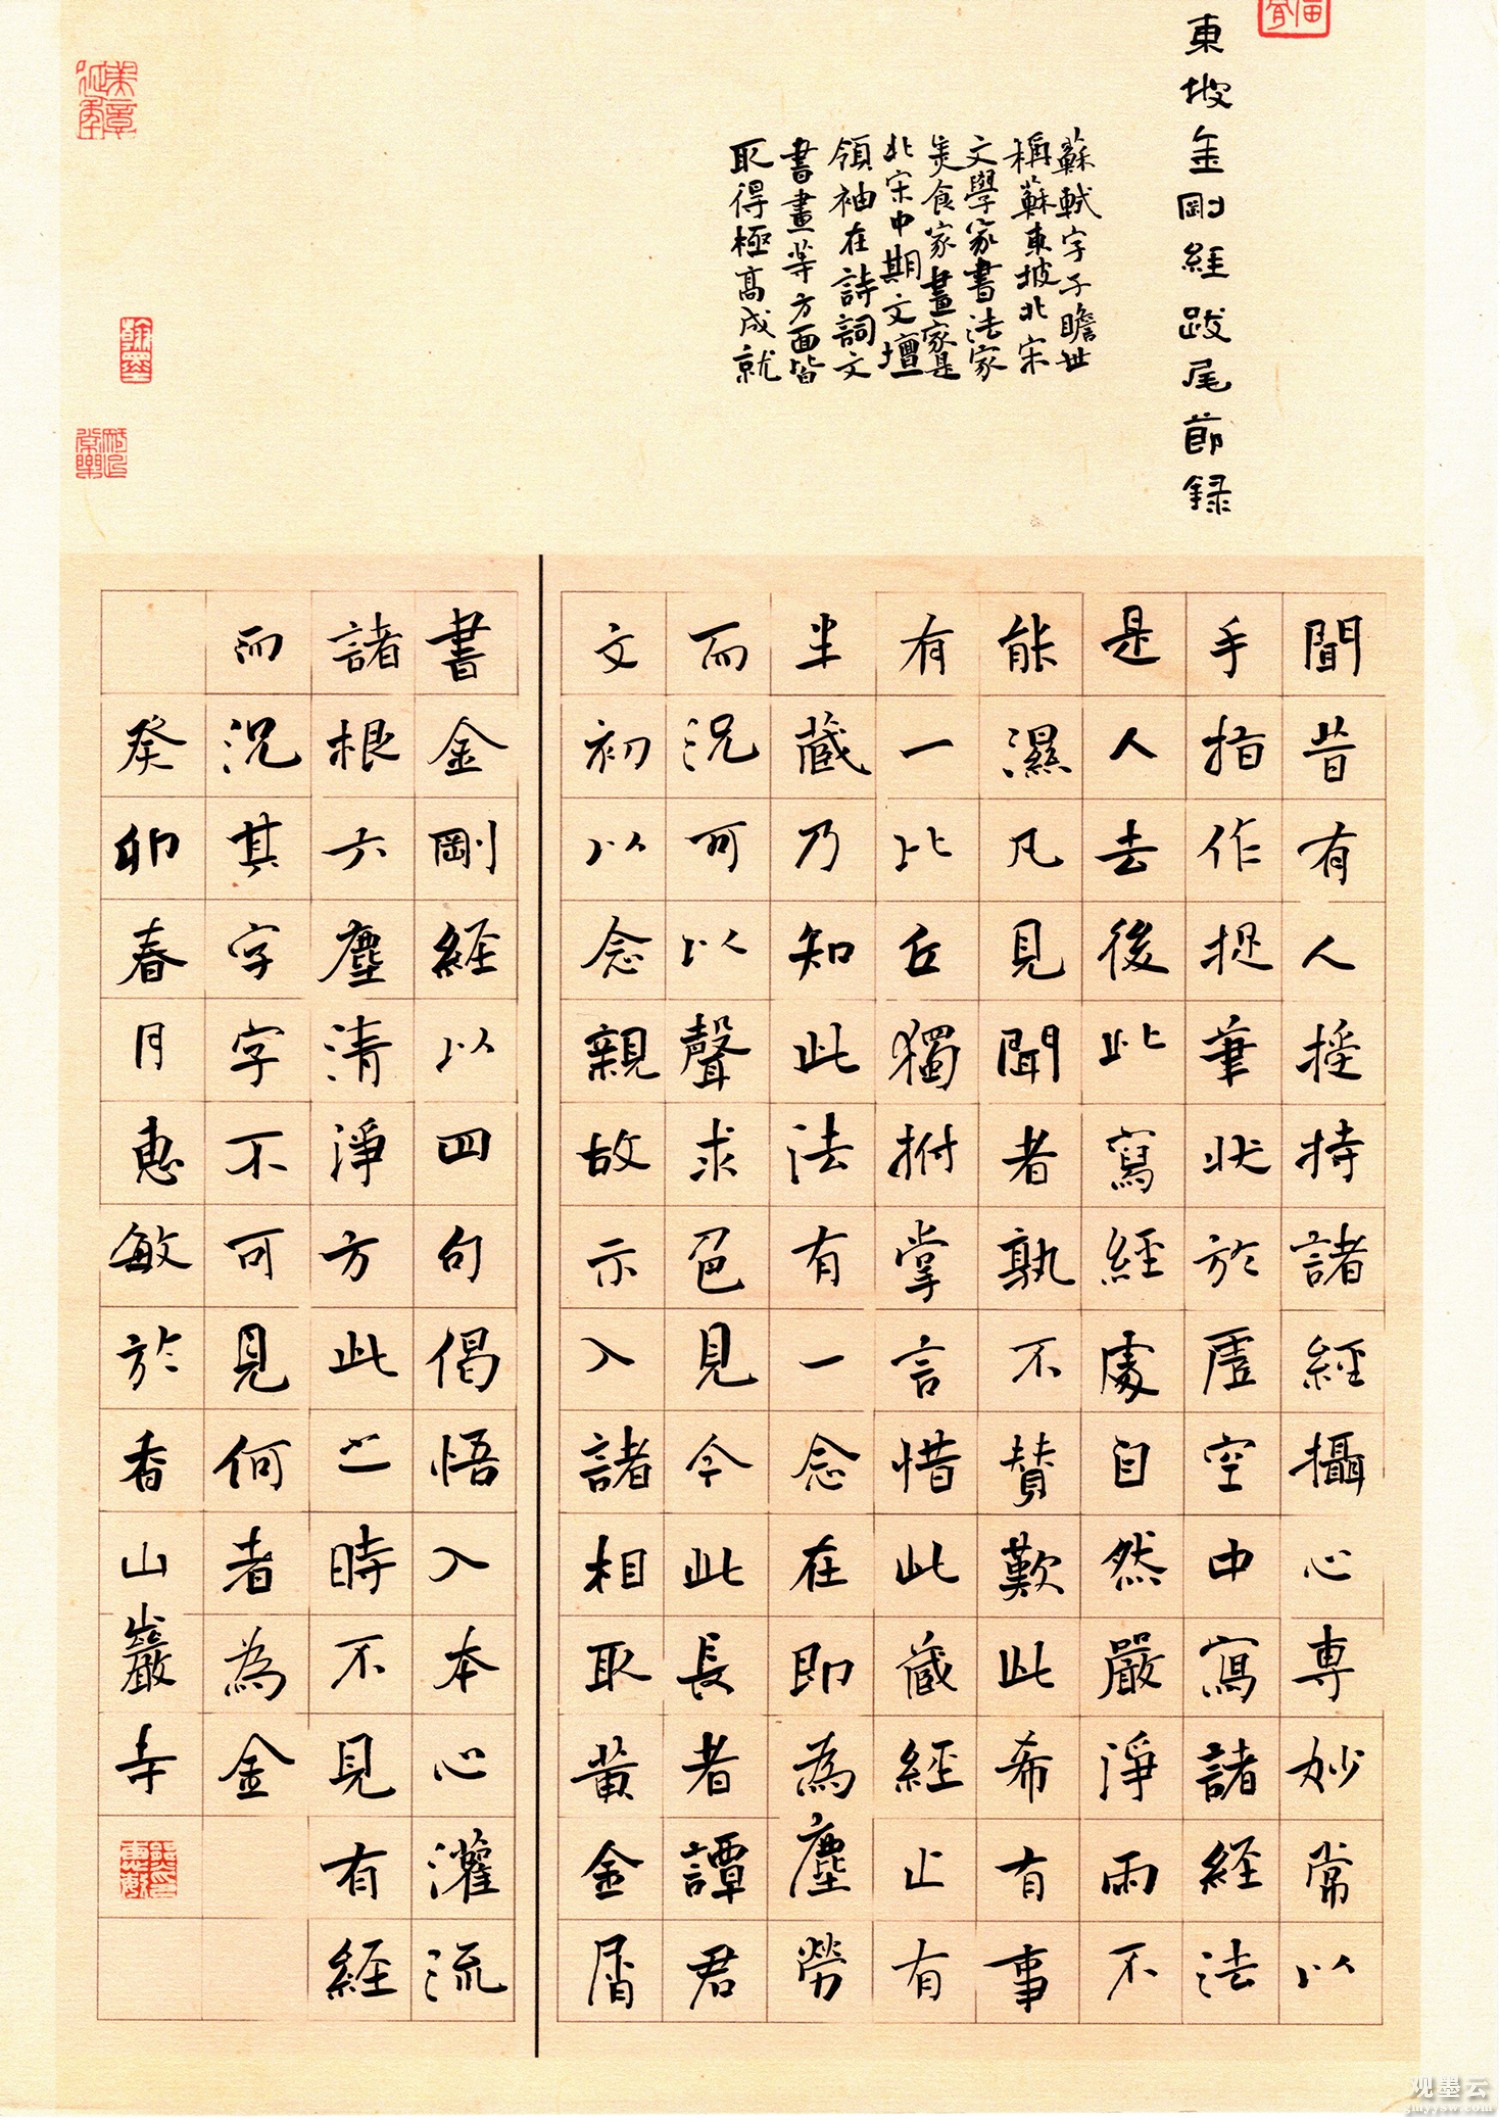 東坡金剛經跋尾節録
蘇軾字子瞻世
稱蘇東坡北宋
文學家書法家
美食家畫家是
北宋中期文壇
領袖在詩詞文
書畫等方面皆
取得極高成就
聞昔有人授持諸經攝心專妙常以
手指作捉筆狀於虛空中寫諸経法
是人去後此寫經處自然嚴淨雨不
能濕凡見聞者孰不賛歎此希有事
有一比丘獨拊掌言惜此蔵經止有
半蔵乃知此法有一念在即為塵勞
而況可以聲求色見今此長者譚君
文初以念親故示入諸相取黃金屑
書金剛経以四句偈悟入本心灌流
諸根六塵清淨方此之時不見有経
而況其字字不可見何者為金
癸卯春月惠敏於香山巖寺
翰墨
观墨云